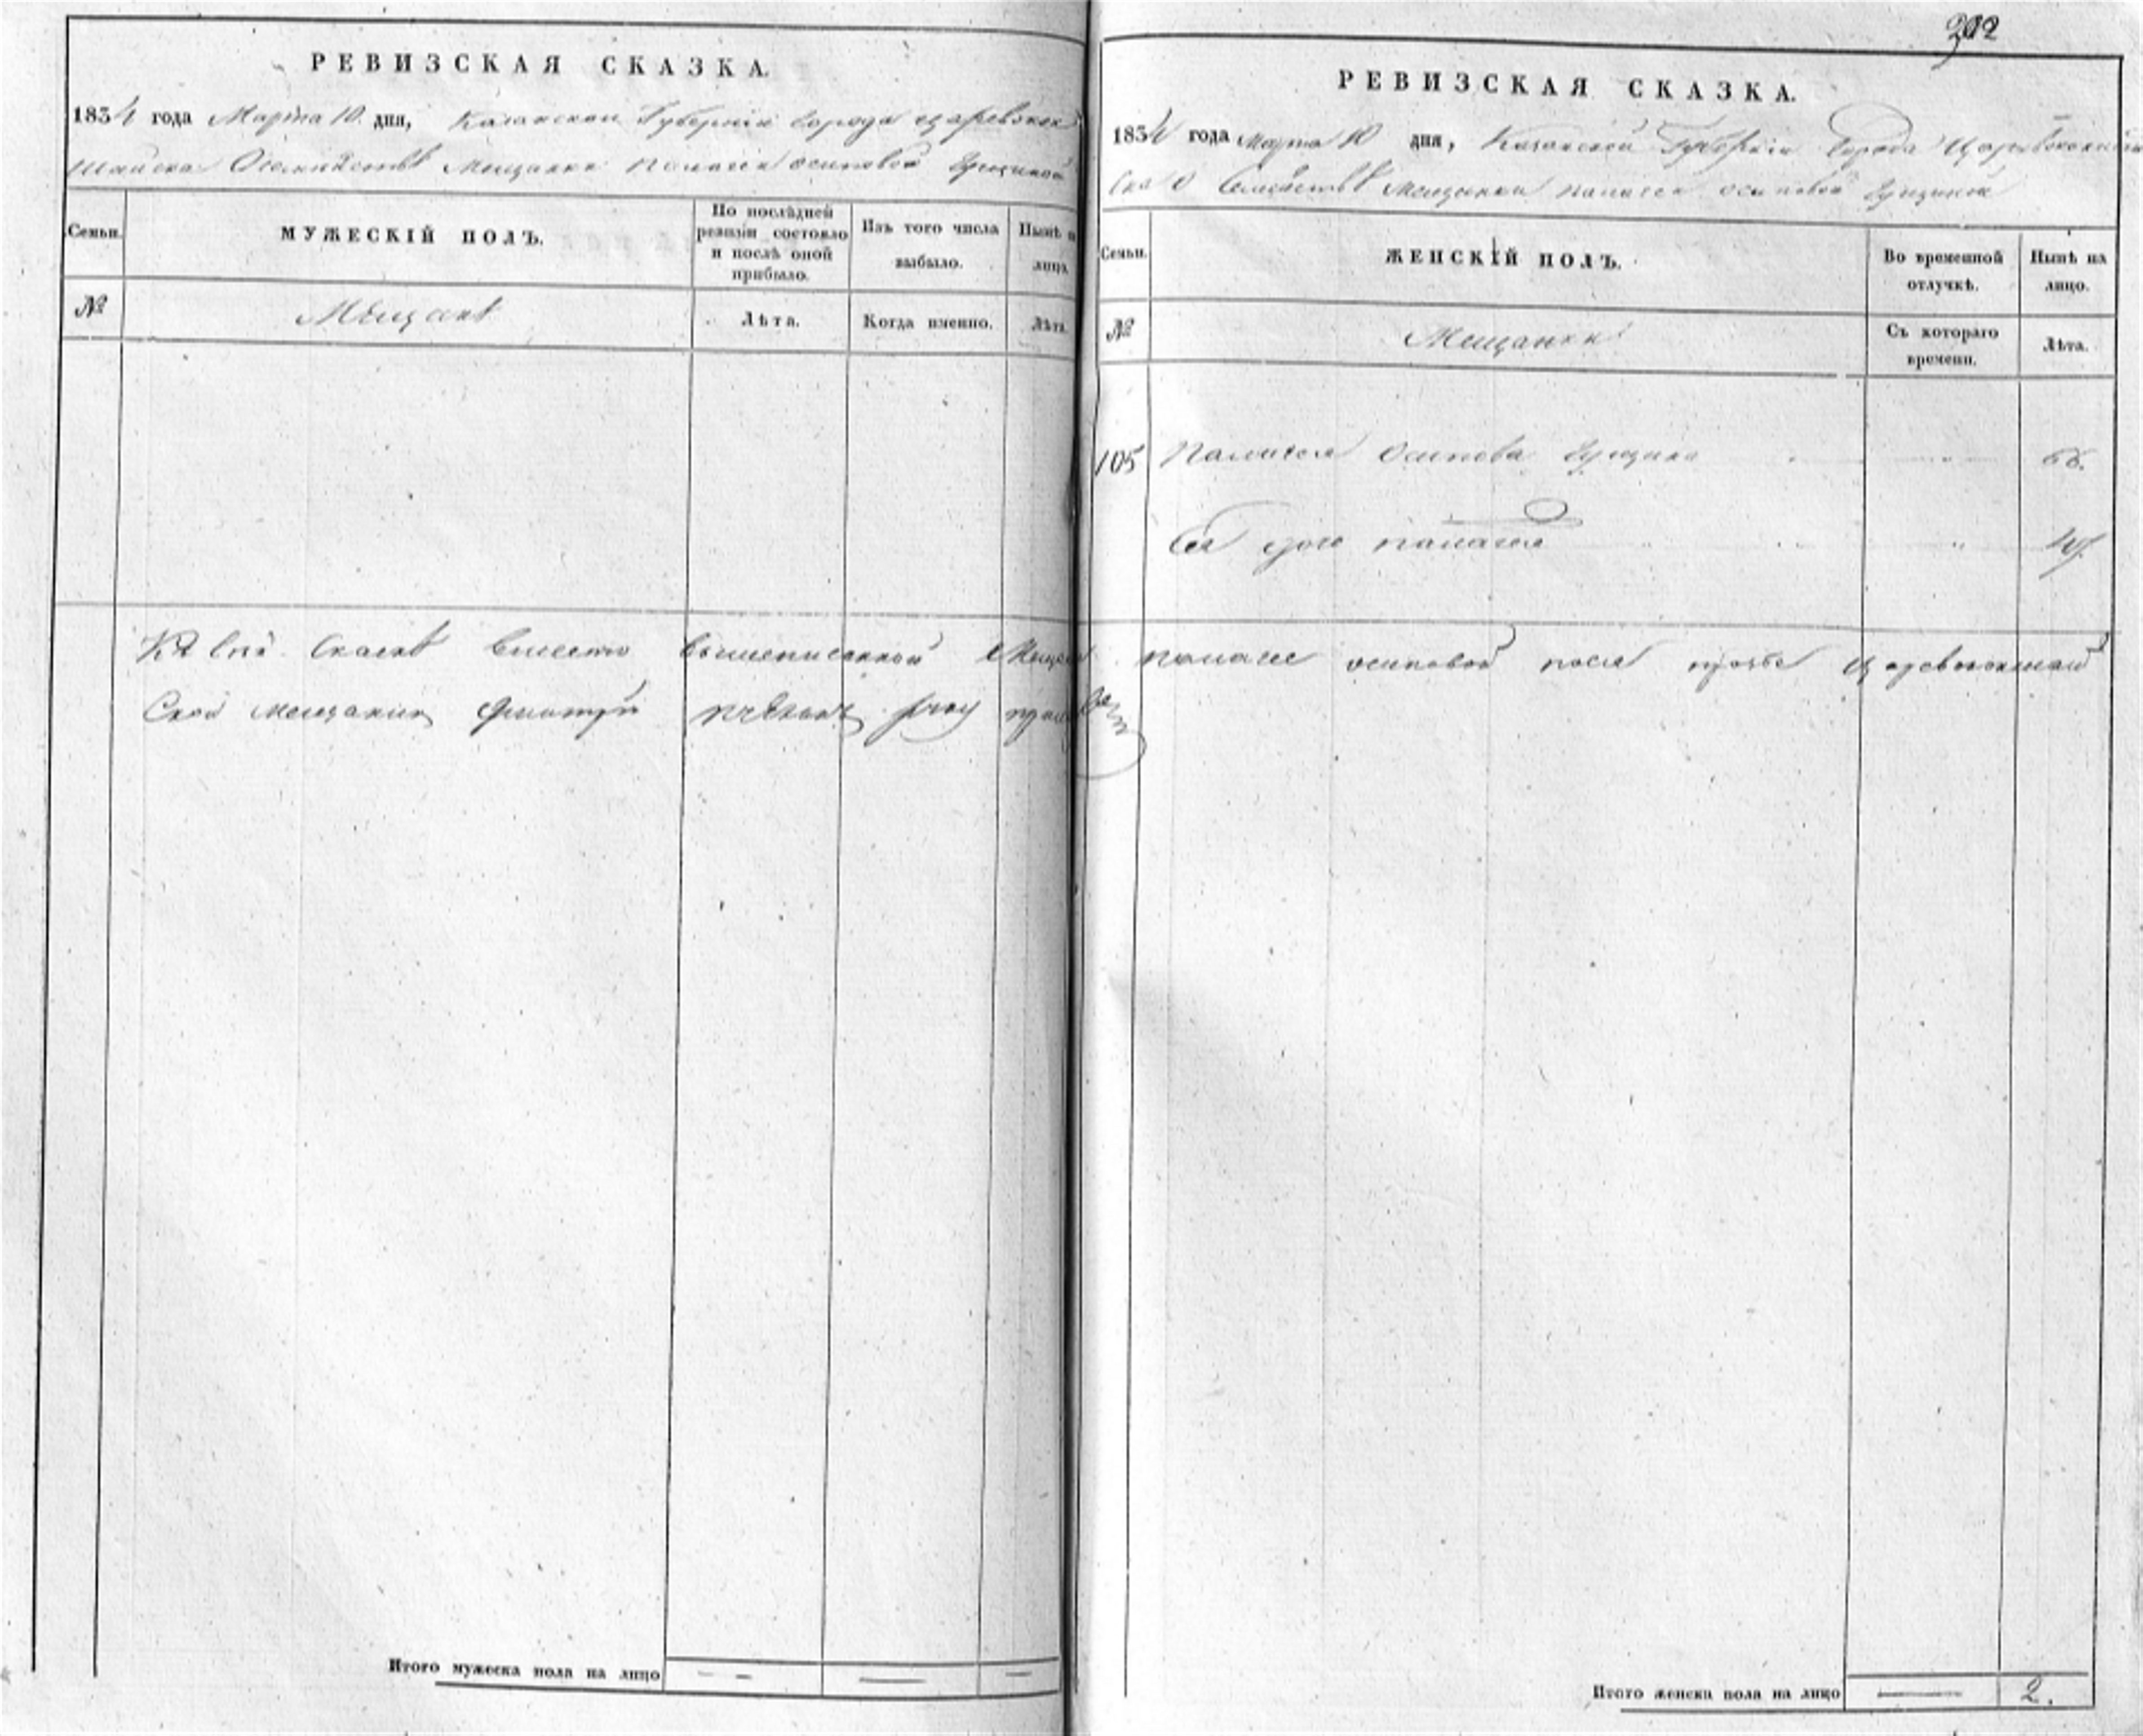 РЕВИЗСКАЯ СКАЗКА.
1834 года Марта 10. дня, Казанской Губерніи города Царевокок
шайска О семействѣ Мещанки Палагеи Осиповой
Семьи.
МУЖЕСКІЙ ПОЛЪ.
По послѣдней ревизіи состояло и послѣ оной прибыло.
Изъ того числа выбыло.
Нынѣ на лицо.
№
Мещанѣ
Лѣта.
Когда именно.
Лѣта.
Къ сей Сказкѣ вместо вышеписанной Мещанки палагеи осиповой после прозбе Царевококшай
ской мещанин Дмитрій руку приложил
Итого мужеска пола на лицо — — —
202
РЕВИЗСКАЯ СКАЗКА.
1834 года Марта 10 дня, Казанской Губерніи Города Царевококшай
ска О Семействѣ Мещанки палагеи осиповой
Семьи.
ЖЕНСКІЙ ПОЛЪ.
Во временной отлучкѣ.
Нынѣ на лицо.
№
Мещанки
Съ котораго времени.
Лѣта.
105 Палагея Осипова 66.
Ея дочь палагея 47.
Итого женска пола на лицо — 2.